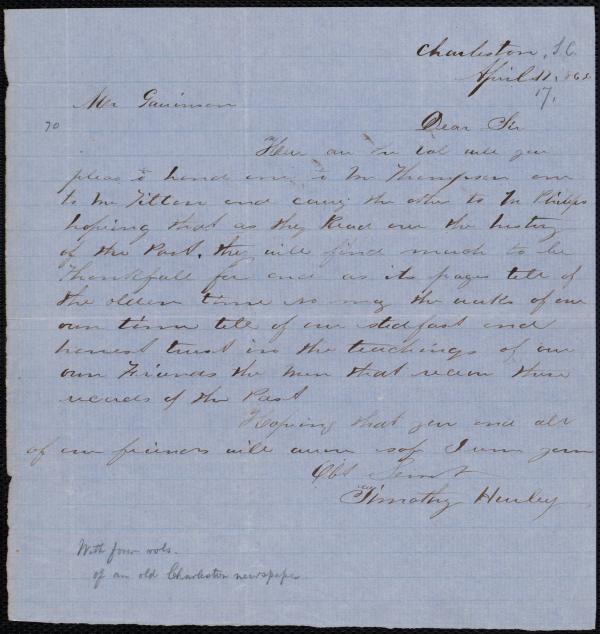 Charleston, S.C.
April 17, 1865
17,
Mr Garrison
70
Dear Sir
Here are the vols will you
pleas to hand one to Mr Thompson one
to Mr Tilton and carry the other to Mr Philips
hoping that as they Read over the history
of the Past. they will find much to be
thankfull for and as its pages tell of
the olden time so may the works of our
own time tell of our stedfast and
honest trust in the teachings of our
own Friends the men that receive these
records of the Past
Hoping that you and all
of our friends will arrive safe I am your
Obt Servt
Timothy Hurley
With four vols.
of an old Charleston newspaper